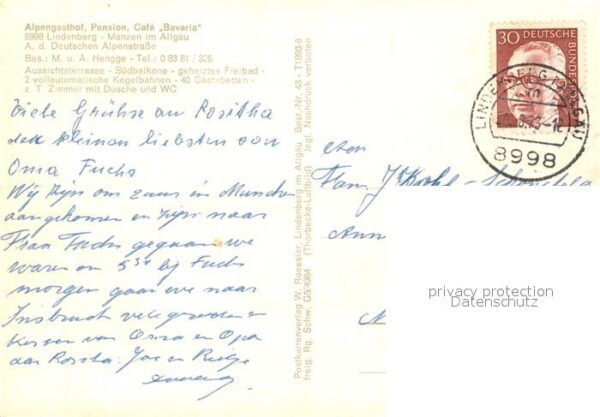 Alpengasthof, Pension, Café „Bavaria"
8998 Lindenberg - Manzen im Allgäu
A. d. Deutschen Alpenstraße
Bes.: M. u. A. Hengge - Tel.: 0 83 81 / 326
Aussichtsterrasse - Südbalkone - geheiztes Freibad -
2 vollautomatische Kegelbahnen - 40 Gästebetten -
z. T. Zimmer mit Dusche und WC
Viele Grühse an Rositha
den kleinen liebsten von
Oma Fuchs
Wij zijn om 2 uur in
aangekomen en zijn naar
Frau Fuchs gegaan we
waren om bij Fuchs
morgen gaan we naar
Insbruck vele groeten en
Kussen van Oma en Opa
aan Rosita. Jac en
Postkartenverlag W. Roessler, Lindenberg im Allgäu Best.-Nr. 43 - T1893-8
freig. Rg. Schw. GS/4984 (Thorbecke-Luftbild) ges. gesl. Nachdruck verboten
30 DEUTSCHE BUNDESPOST
LINDENBERG (ALLGÄU)
8998
Fam.
privacy protection
Datenschutz